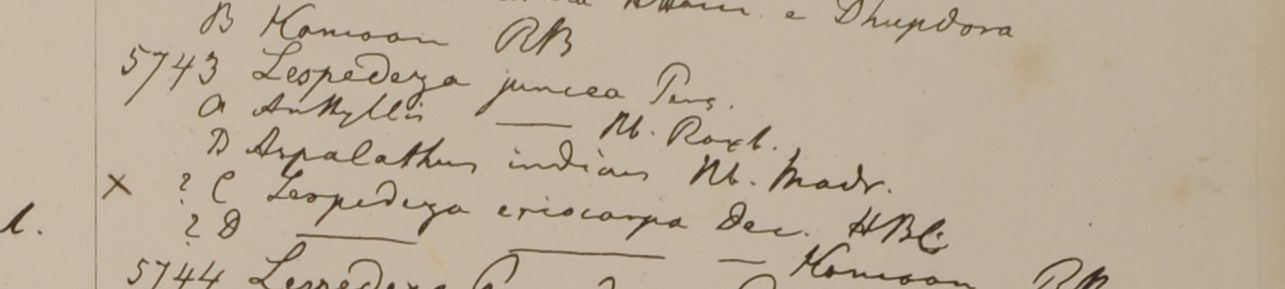 e Dhupdora
B Kamoon RB
5743 Lespedeza juncea Pers.
a Anthyllis —— Hb. Roxb.
B Aspalathus indicus Hb. Madr.
x ? C Lespedeza eriocarpa Dec. HBC
l.
? D —— —— — Kamoon RB
5744 Lespedeza